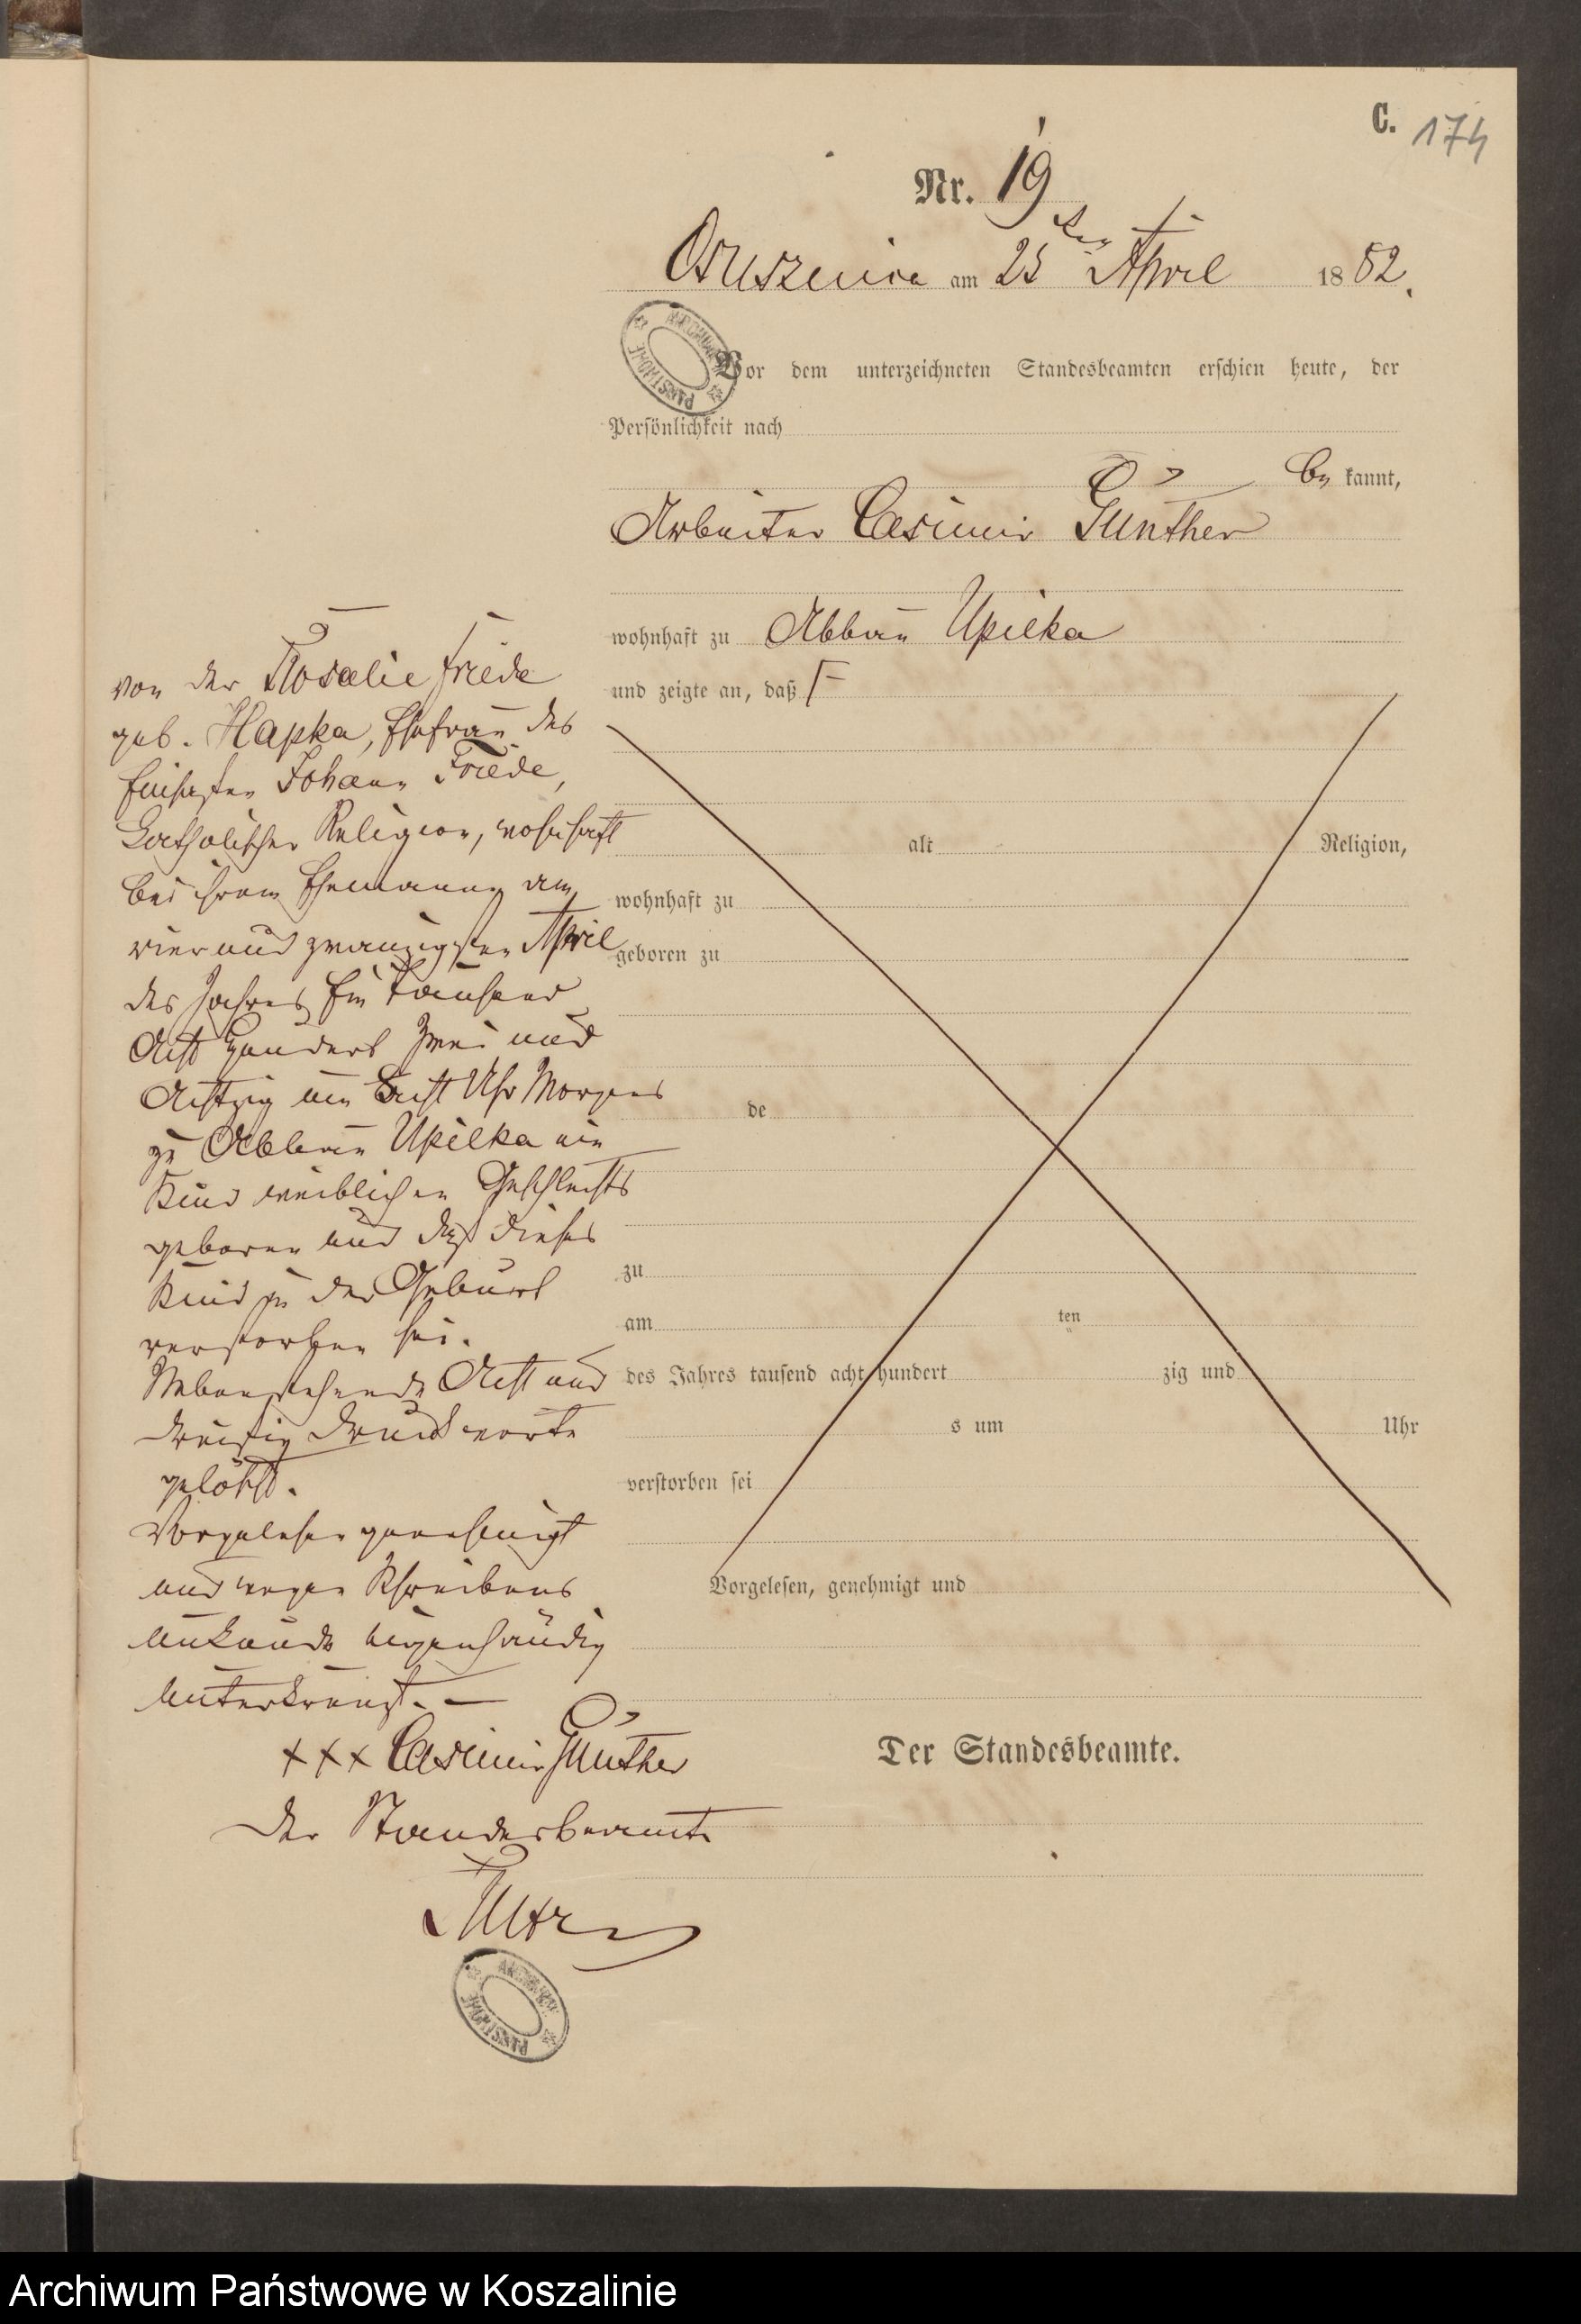 C. 174
Nr. 19
Osuszenica am 25ten April 1882.
Vor dem unterzeichneten Standesbeamten erschien heute, der
Persönlichkeit nach
be kannt,
Arbeiter Casimir Günther
wohnhaft zu Abbau Upilka
und zeigte an, daß ⌈
alt Religion,
wohnhaft zu
geboren zu
de
zu
am ten
des Jahres tausend acht hundert zig und
s um Uhr
verstorben sei
Vorgelesen, genehmigt und
Der Standesbeamte.
von der Rosalie Friede
geb. Hapka, Ehefrau des
Einsassen Johann Friede,
katholischer Religion, wohnhaft
bei ihrem Ehemanne am
vier und zwanzigsten April
des Jahres Ein Tausend
Acht Hundert Zwei und
Achtzig um Acht Uhr Morgens
zu Abbau Upilka ein
Kind weiblichen Geschlechts
geboren und daß dieses
Kind in der Geburt
verstorben sei.
Nebenstehende Acht und
dreißig Druckworte
gelöscht.
Vorgelesen genehmigt
und wegen Schreibens
unkunde eigenhändig
unterkreuzt. —
+++ Casimir Günther
Der Standesbeamte
ARCHIWUM PAŃSTWOWE
ARCHIWUM PAŃSTWOWE
Archiwum Państwowe w Koszalinie